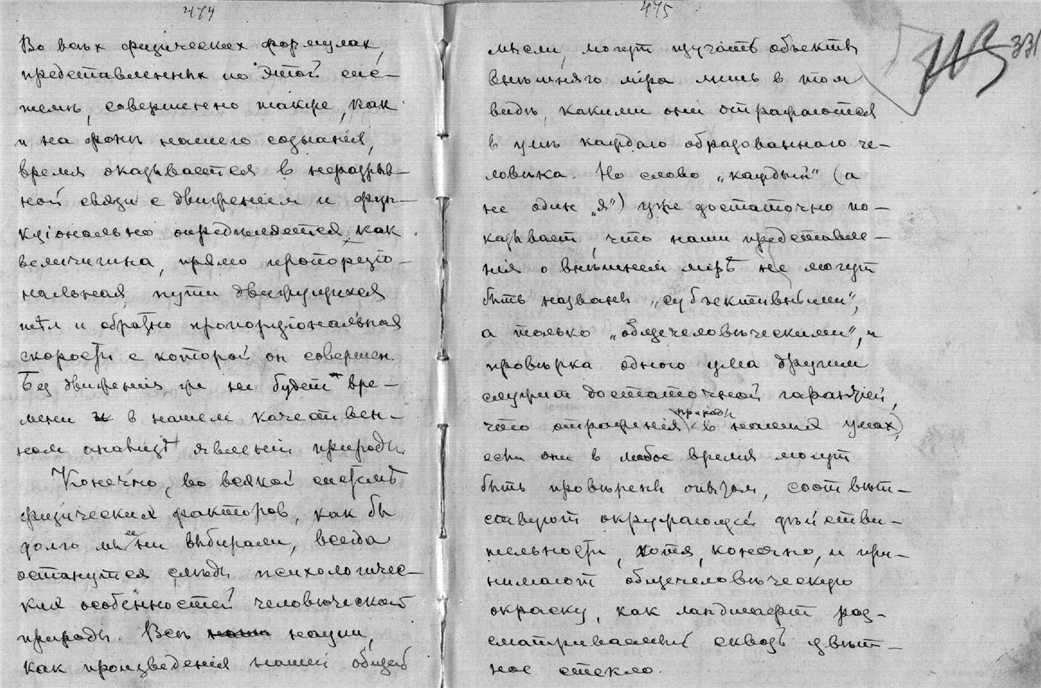 474
Во всѣх физических формулах,
представленных по этой сис-
темѣ, совершенно также, как
и на фонѣ нашего сознанія,
время оказывается в неразрыв-
ной связи с движеніем и фун-
кціонально опредѣляется, как
величина, прямо пропорціо-
нальная пути движущихся
тѣл и обратно пропорціональная
скорости с которой он совершен.
Без движенія же не будет вре-
мени и в нашем качествен-
ном анализѣ явленій природы.
Конечно, во всякой системѣ
физических факторов, как бы
долго мы ее ни выбирали, всегда
останутся слѣды психологичес-
ких особенностей человѣческой
природы. Всѣ наши науки,
как произведенія нашей общей
475
331
мысли, могут изучать объекты
внѣшняго міра лишь в том
видѣ, какими они отражаются
в умѣ каждаго образованнаго че-
ловѣка. Но слово „каждый“ (а
не один „я“) уже достаточно по-
казывает, что наши представле-
нія о внѣшнем мірѣ не могут
быть названы „субъективными“,
а только „общечеловѣческими“, и
провѣрка одного ума другим
служит достаточной гарантіей,
что отраженія природы в наших умах,
если они в любое время могут
быть провѣрены опытом, соотвѣт-
ствуют окружающей дѣйстви-
тельности, хотя, конечно, и при-
нимают общечеловѣческую
окраску, как ландшафт раз-
сматриваемый сквозь цвѣт-
ное стекло.